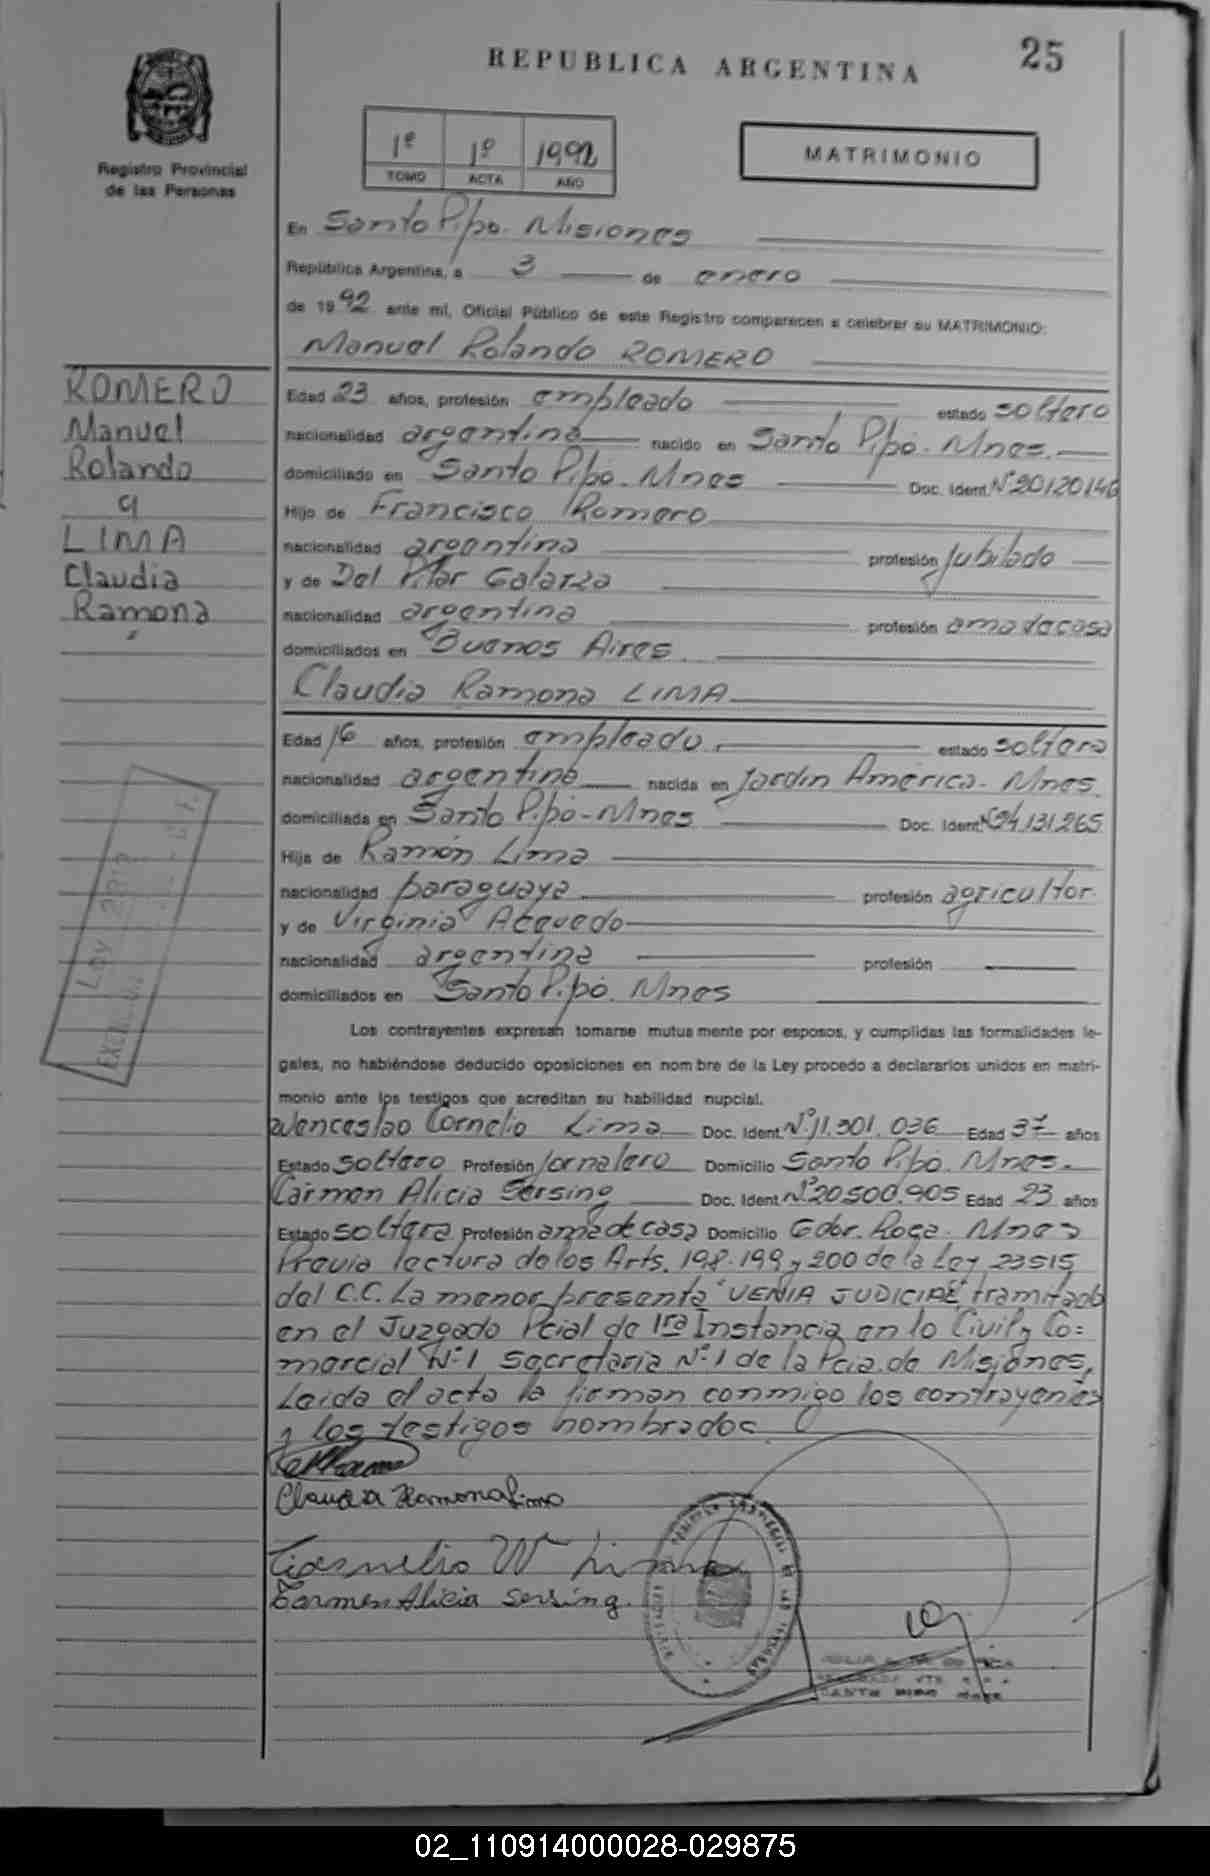 25
REPUBLICA ARGENTINA
Registro Provincial
de las Personas
1º 1º 1992
TOMO ACTA AÑO
MATRIMONIO
En Santo Pipó. Misiones
República Argentina, a 3 de enero
de 1992 ante mí, Oficial Público de este Registro comparecen a celebrar su MATRIMONIO:
Manuel Rolando ROMERO
ROMERO
Manuel
Rolando
LIMA
Claudia
Ramona
Edad 23 años, profesión empleado estado soltero
nacionalidad argentina nacido en Santo Pipó. Mnes.
domiciliado en Santo Pipó. Mnes Doc. Ident. Nº 20120146
Hijo de Francisco Romero
nacionalidad argentina profesión jubilado
y de Del Pilar Galarza
nacionalidad argentina profesión ama de casa
domiciliados en Buenos Aires.
Claudia Ramona LIMA
Edad 16 años, profesión empleado, estado soltera
nacionalidad argentina nacida en Jardín América. Mnes.
domiciliada en Santo Pipó-Mnes Doc. Ident. Nº 24.131.265
Hija de Ramón Lima
nacionalidad paraguaya profesión agricultor.
y de Virginia Acevedo
nacionalidad argentina profesión
domiciliados en Santo Pipó. Mnes
Los contrayentes expresan tomarse mutuamente por esposos, y cumplidas las formalidades le-
gales, no habiéndose deducido oposiciones en nombre de la Ley procedo a declararlos unidos en matri-
monio ante los testigos que acreditan su habilidad nupcial.
Wenceslao Cornelio Lima Doc. Ident. Nº 11.301.036 Edad 37 años
Estado soltero Profesión Jornalero Domicilio Santo Pipó. Mnes.
Carmen Alicia Sersing Doc. Ident. Nº 20.500.905 Edad 23 años
Estado soltera Profesión ama de casa Domicilio Gdor. Roca. Mnes
Previa lectura de los Arts. 198.199 y 200 de la Ley 23515
del C.C. La menor presenta "VENIA JUDICIAL" tramitado
en el Juzgado Pcial de 1ra Instancia en lo Civil y Co=
mercial Nº1 Secretaria Nº1 de la Pcia. de Misiones.
Leída el acta la firman conmigo los contrayentes
y los testigos nombrados
Claudia Ramona Lima
Cornelio W Lima
Carmen Alicia Sersing.
02_110914000028-029875